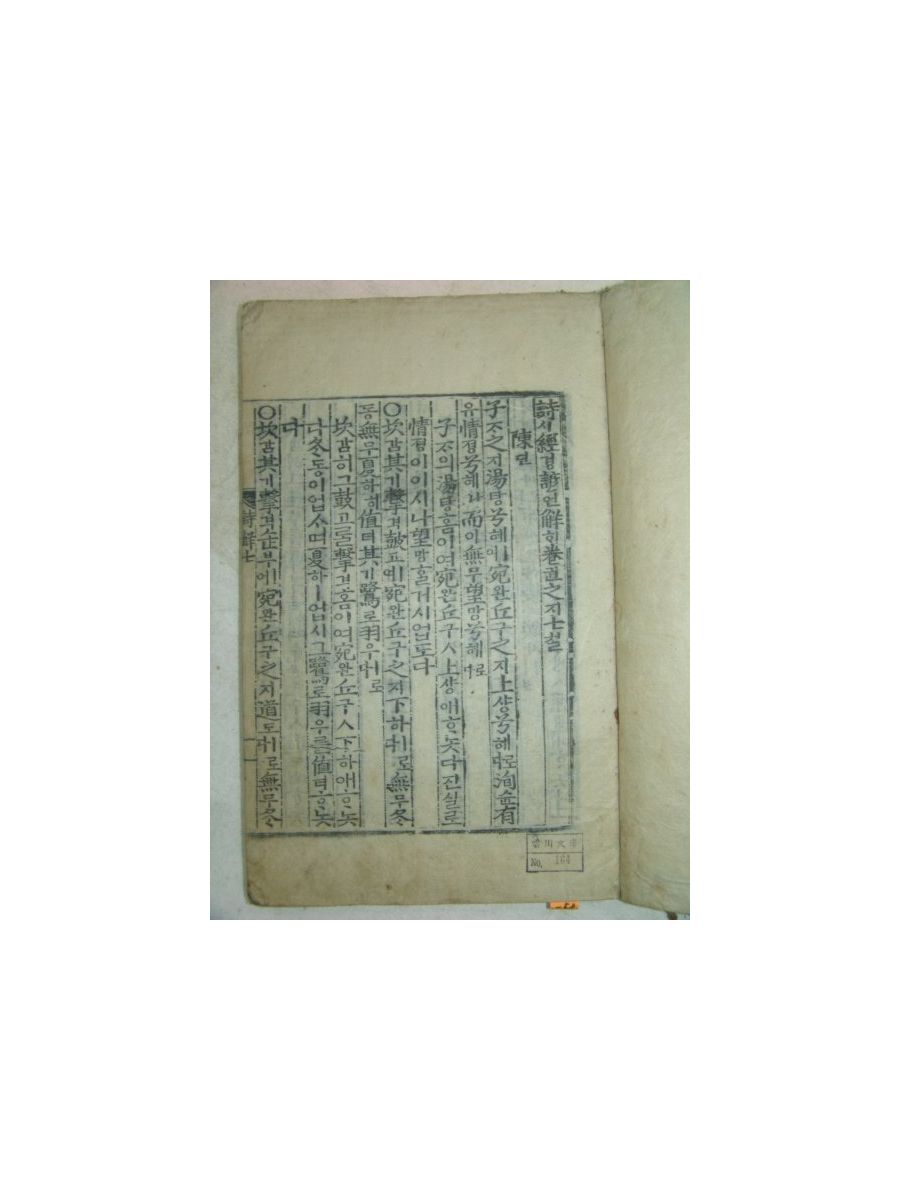 詩시經경諺언解ᄒᆡ卷권之지七칠
陳딘
子ᄌᆞ之지湯탕兮혜여宛완丘구之지上샹兮혜로다洵슌有
유情졍兮혜나而이無무望망兮혜로다
子ᄌᆞ의湯탕홈이여宛완丘구ㅅ上샹애ᄒᆞ놋다진실로
情졍이이시나望망ᄒᆞᆯ거시업도다
○坎감其기擊격鼓고ㅣ여宛완丘구之지下하ㅣ로다無무冬
동無무夏하히値티其기鷺로羽우ㅣ로다
坎감히그鼓고를擊격홈이여宛완丘구ㅅ下하애ᄒᆞ놋
다冬동이업ᄉᆞ며夏하ㅣ업시그鷺로羽우를値티ᄒᆞ놋
다
○坎감其기擊격缶부ㅣ여宛완丘구之지道도ㅣ로다無무冬
詩解七
No. 164